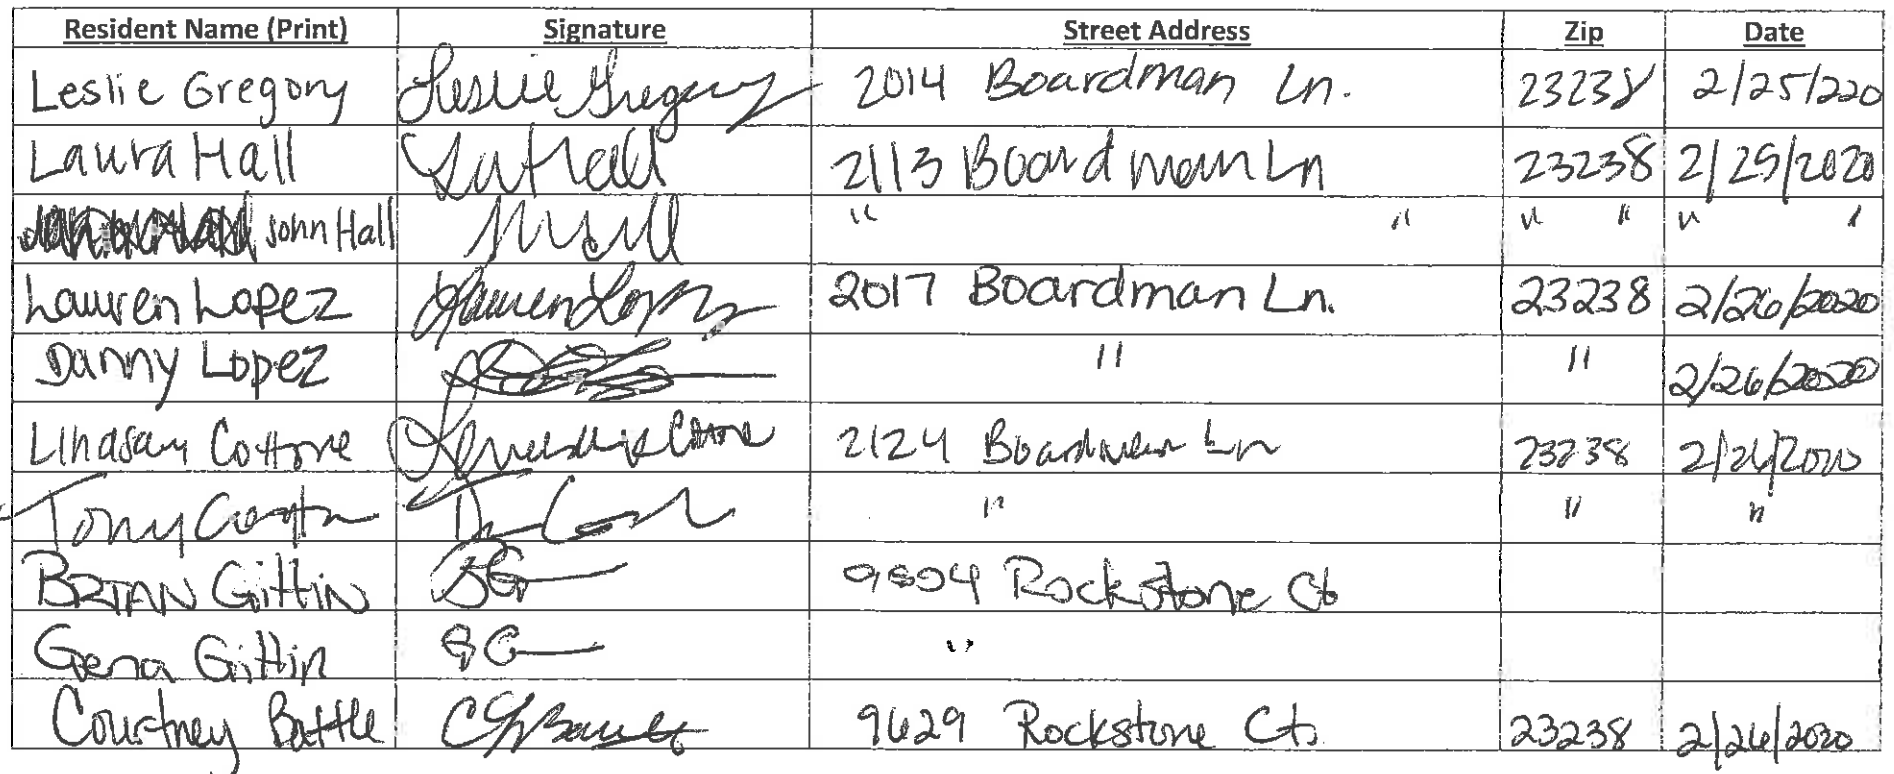 Resident Name (Print) Signature Street Address Zip Date
Leslie Gregory Leslie Gregory 2014 Boardman Ln. 23238 2/25/220
Laura Hall La Hall 2113 Boardman Ln 23238 2/25/2020
John Hall " " " " " "
Lauren Lopez Lauren Lopez 2017 Boardman Ln. 23238 2/26/2020
Danny Lopez " " 2/26/2020
Lindsay Cottone 2124 Boardman Ln 23238 2/26/2020
Tony " " "
BRIAN Gittin BG 9504 Rockstone Ct
Gena Gittin GG "
Courtney Battle 9629 Rockstone Ct. 23238 2/26/2020